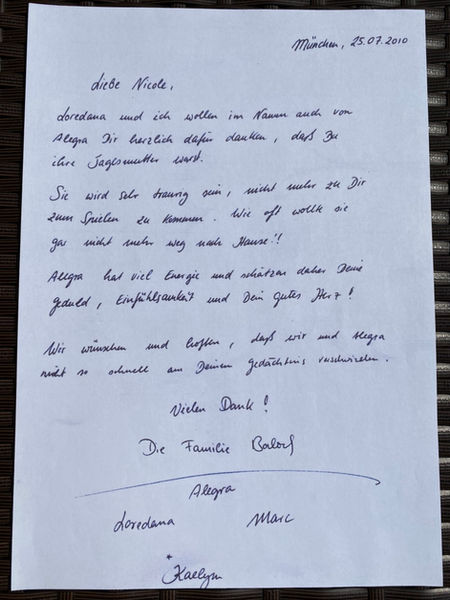 München, 25.07.2010
Liebe Nicole,
Loredana und ich wollen im Namen auch von
Alegra Dir herzlich dafür danken, daß Du
ihre Tagesmutter warst.
Sie wird sehr traurig sein, nicht mehr zu Dir
zum Spielen zu kommen. Wie oft wollte sie
gar nicht mehr weg nach Hause!!
Alegra hat viel Energie und schätzen daher Deine
Geduld, Einfühlsamkeit und Dein gutes Herz!
Wir wünschen und hoffen, daß wir und Alegra
nicht so schnell aus Deinem Gedächtnis verschwinden.
Vielen Dank!
Die Familie
Alegra
Loredana Marc